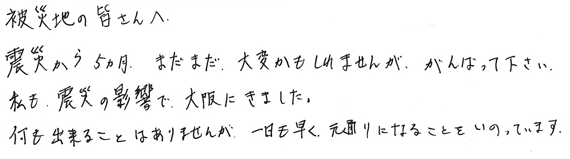 被災地の皆さんへ.
震災から5ヵ月. まだまだ. 大変かもしれませんが. がんばって下さい.
私も. 震災の影響で. 大阪にきました。
何も出来ることはありませんが. 一日も早く. 元通りになることをいのっています.